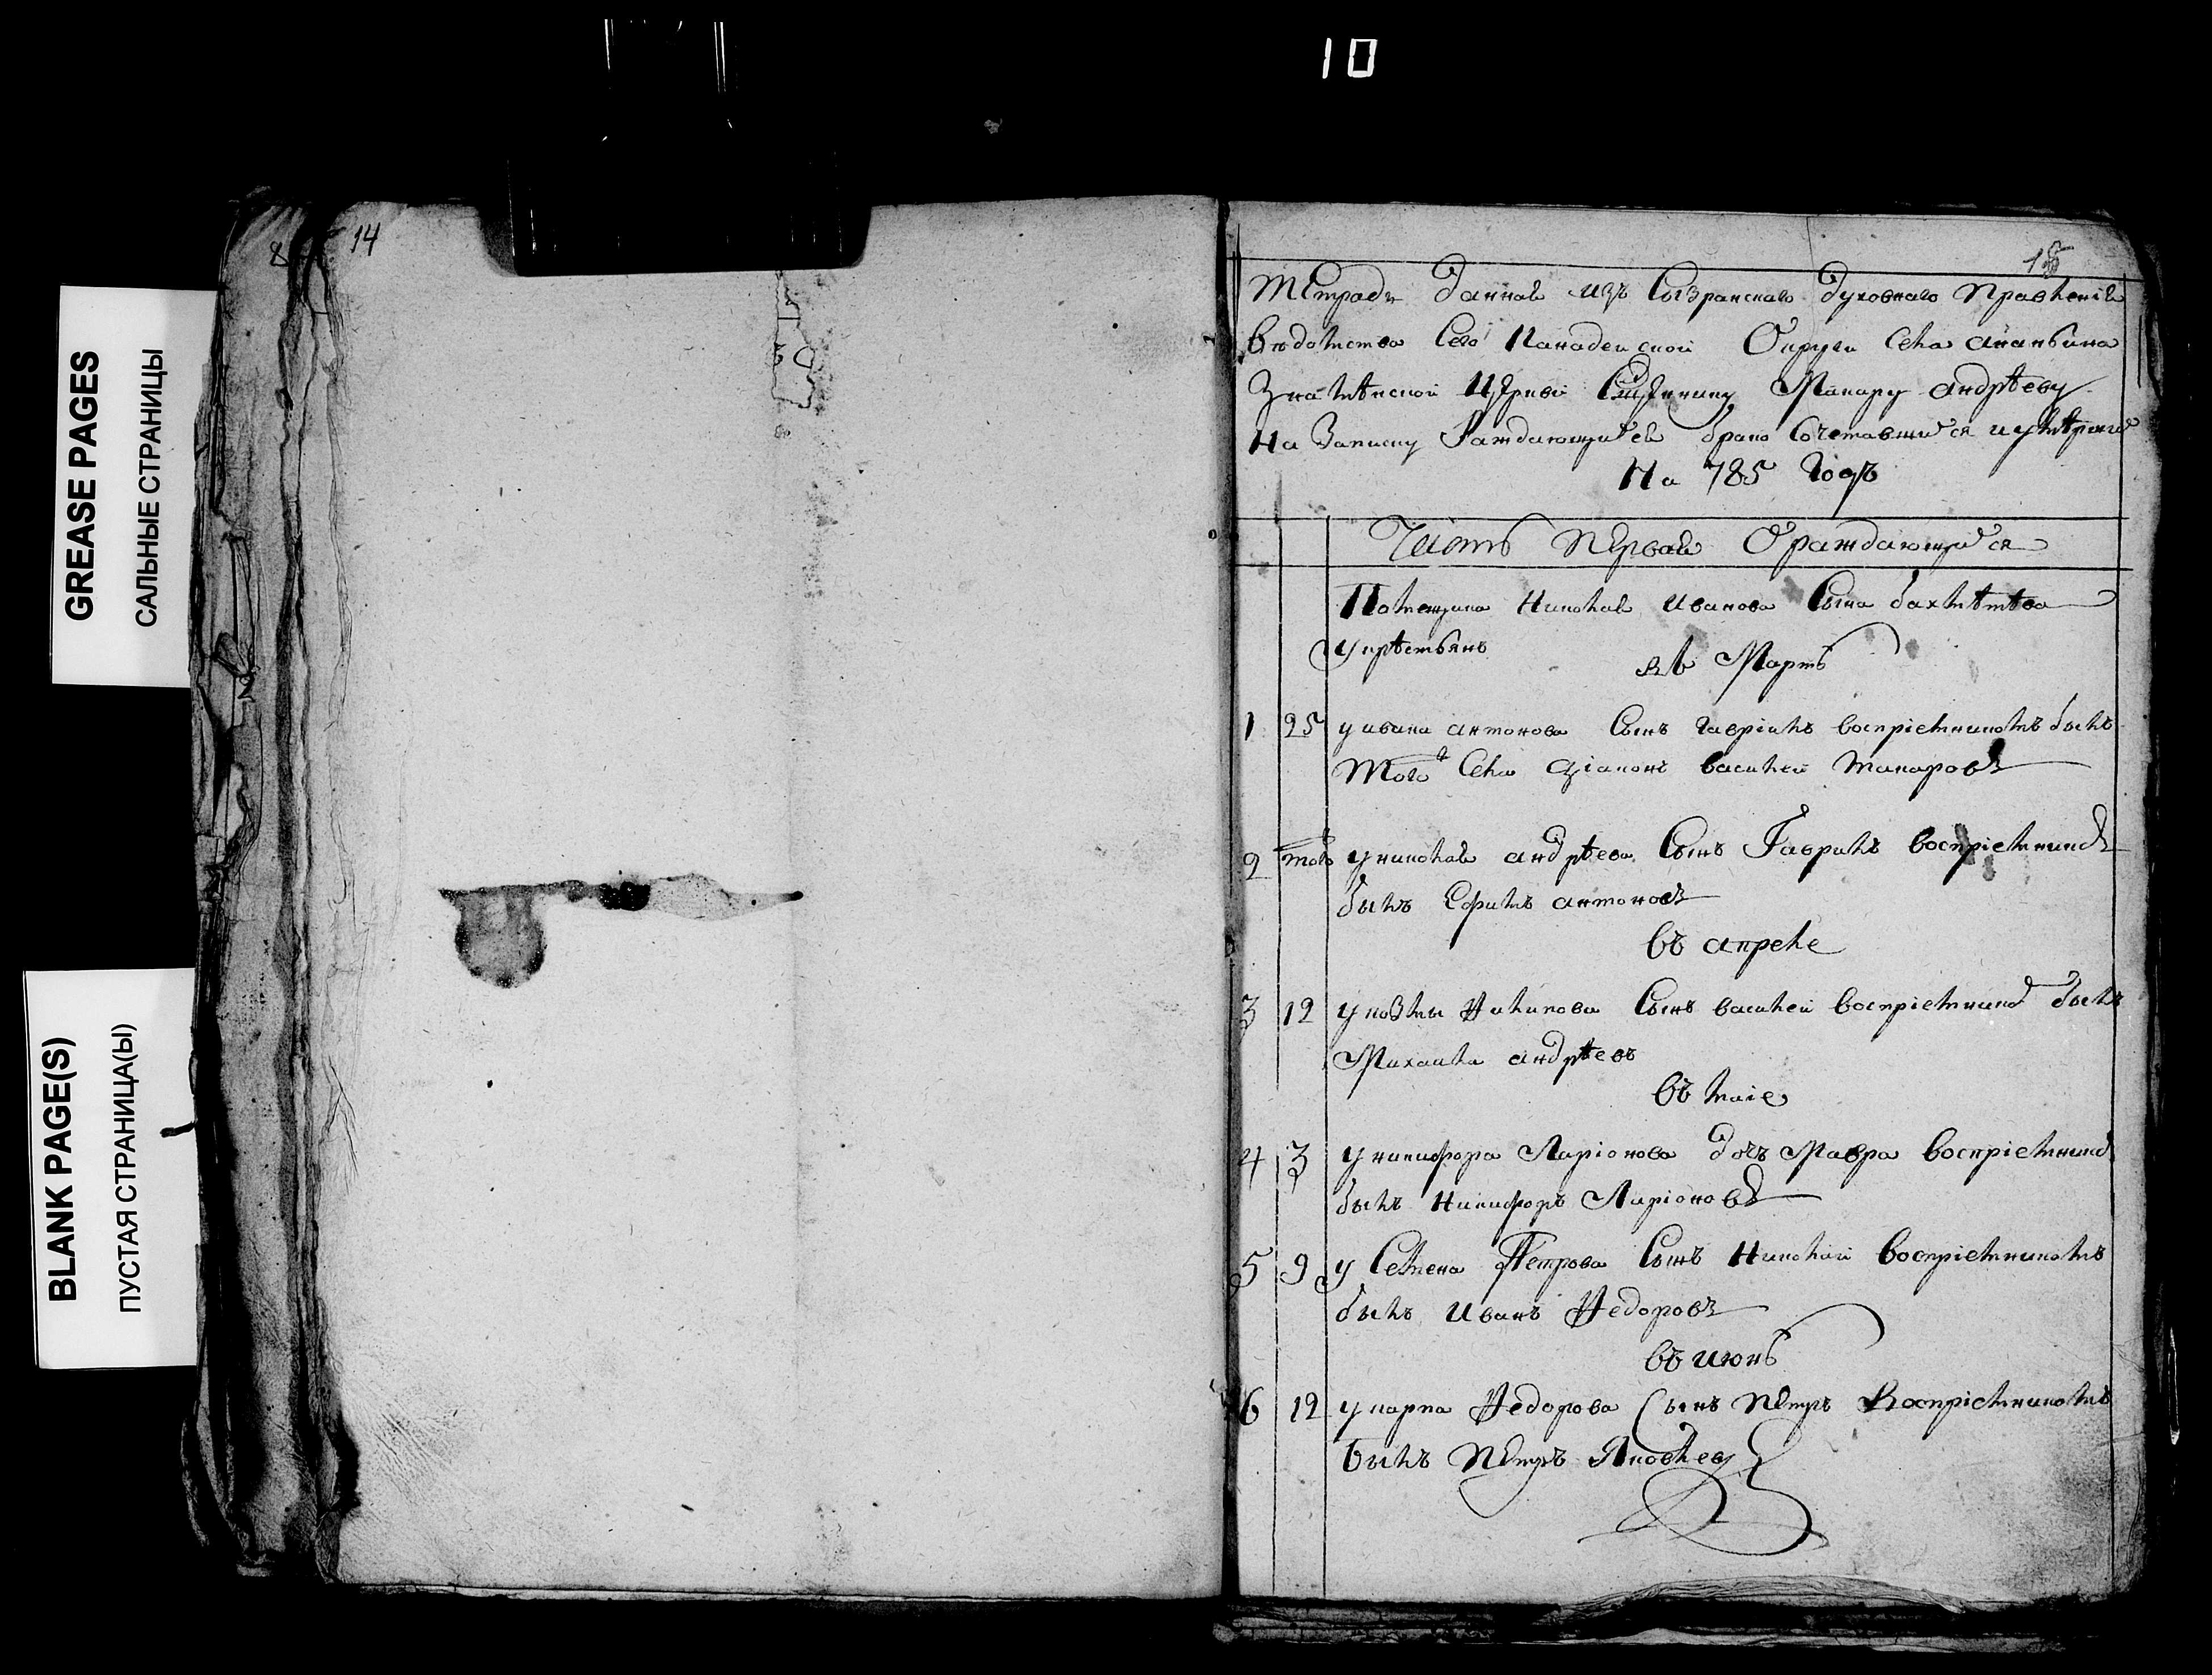 10
8
14
15
GREASE PAGES
САЛЬНЫЕ СТРАНИЦЫ
BLANK PAGE(S)
ПУСТАЯ СТРАНИЦА(Ы)
Тетрадь данная изъ Сызранскаго духовнаго правления
ведомства Села Канадейской Округи Села ананьина
Знаменской Церкви Сщеннику Макару андрѣеву
на Записку Раждающихся брако Сочетавшихся и умѣрших
На 785 Годъ
Часть Первая О раждающихся
Помещика Николая Иванова Сына бахмѣтѣва
у крѣстьянъ
въ Мартѣ
1 25 у ивана антонова Сынъ гавріилъ воспріемникомъ былъ
того Села діаконъ василей макаровъ
2 того у николая андрѣева Сынъ Гаврилъ воспріемник
былъ Ефимъ антоновъ
въ апреле
3 12 у козмы Филипова Сынъ василей воспріемник былъ
Михаила андрѣевъ
въ маіе
4 3 у никифора Ларіонова дочь Мавра воспріемник
былъ Никифоръ Ларіоновъ
5 9 у Семена Петрова Сынъ Николай воспріемникомъ
былъ Иванъ Федоровъ
въ июнѣ
6 12 у карпа Федорова Сынъ Петръ Воспріемникомъ
былъ Петръ Яковлевъ